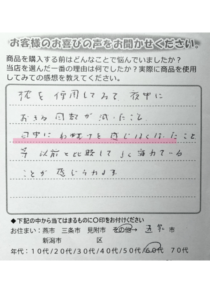 お客様のお喜びの声をお聞かせください
商品を購入する前はどんなことで悩んでいましたか?
当店を選んだ一番の理由は何でしたか?実際に商品を使用
してみての感想を教えてください。
を使用してみて 夜中に
おきる回数が減ったこと
日中に を感じなくなったこと
等 以前と比較して
ことが感じられます
◆下記の中から当てはまるものに○印をお付けください
お住まい:燕市 三条市 見附市 その他→ 市
新潟市 区
年代:10代/20代/30代/40代/50代/60代 70代